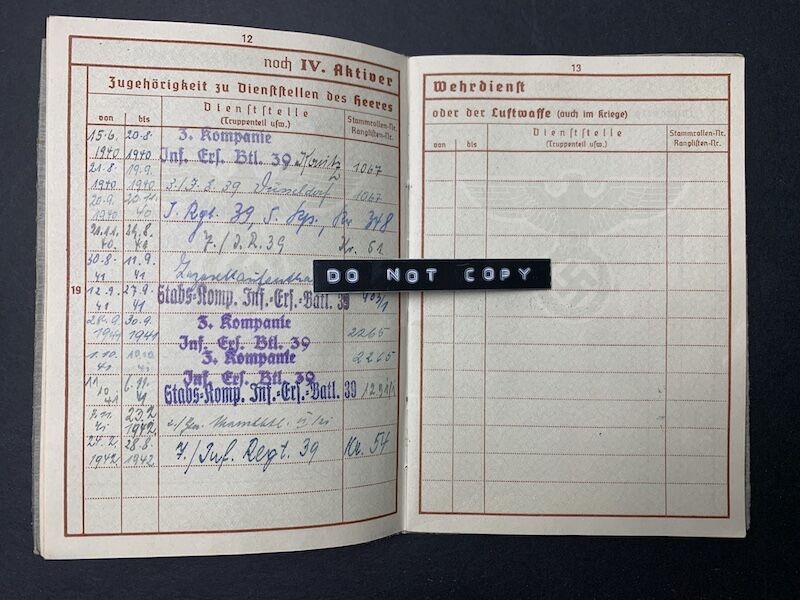 12
noch IV. Aktiver
Zugehörigkeit zu Dienststellen des Heeres
von bis
Dienststelle
(Truppenteil usw.)
Stammrollen-Nr.
Ranglisten-Nr.
19
15.6. 20.8.
1940 1940
3. Kompanie
Inf. Ers. Btl. 39
1067
21.8. 19.9.
1940 1940
Düsseldorf 1067
20.9. 20.11.
1940 40
J. Rgt. 39, 5. Kp., Nr 348
40. 41
7./J.R. 39 Nr. 61
30.8. 11.9.
41 41
12.9. 27.9.
41 41
Stabs-Komp. Inf.-Ers.-Batl. 39
28.9. 30.9.
1941 1941
3. Kompanie
Inf. Ers. Btl. 39
2265
1.10. 10.10.
41 41
3. Kompanie
Inf. Ers. Btl. 39
2265
11. 6.11.
10. 41
41
Stabs-Komp. Inf.-Ers.-Batl. 39
7.11. 23.2.
41 1942
24.2. 28.8.
1942 1942
7./Inf. Regt. 39 Nr. 54
DO NOT COPY
13
Wehrdienst
oder der Luftwaffe (auch im Kriege)
von bis
Dienststelle
(Truppenteil usw.)
Stammrollen-Nr.
Ranglisten-Nr.